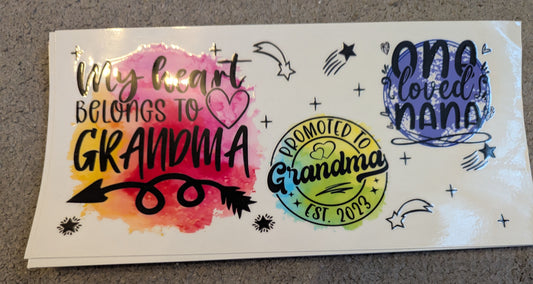 My heart
BELONGS TO
GRANDMA
PROMOTED TO
Grandma
EST. 2023
one
loved
NANA